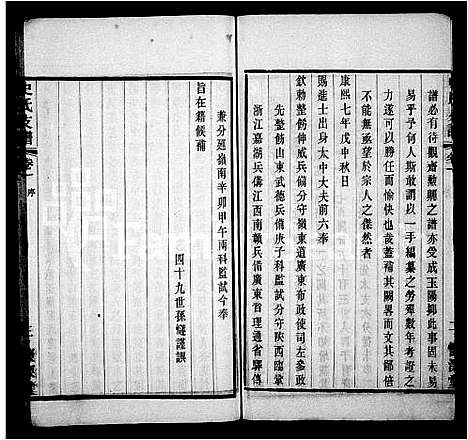 譜必有待觀齋勲之譜亦受成玉陽抑此事固未易
易乎予何人斯敢謂以一手編纂之勞殫數年考證之
力遂可以無任而愉快也哉蓋補其闕畧而文其鄙倍
則有不無亟望於宗人之傑然者
康熙七年戊申秋日
賜進士出身太中大夫前六奉
欽勅整飭伸威兵備分守嶺東道廣東布政使司參政
先整飭山東武德兵備庚子科監試分守陝西臨鞏
浙江嘉湖兵備江西南贛兵備廣東首理通省驛傳
兼分巡嶺南辛卯甲午兩科監試今奉
旨在籍候補
四十九世孫燧謹譔
史氏支譜
卷一
序